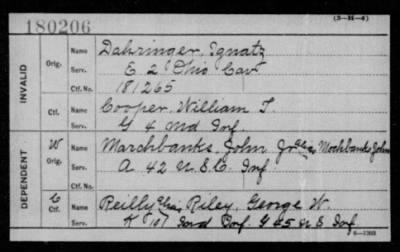 (3-H-4)
180206
INVALID
Orig.
Name Dahringer, Ignatz
Serv. E 2 Ohio Cav
Ctf. No. 181265
Ctf.
Name Cooper, William T.
Serv. G 4 Md Inf
DEPENDENT
W
Orig.
Name Marchbanks, John Jr alias Mochbanks John
Serv. A 42 U.S.C. Inf
Ctf. No.
C
Ctf.
Name Reilly alias Riley, George W.
Serv. K 101 Ind Inf. G 65 U S Inf